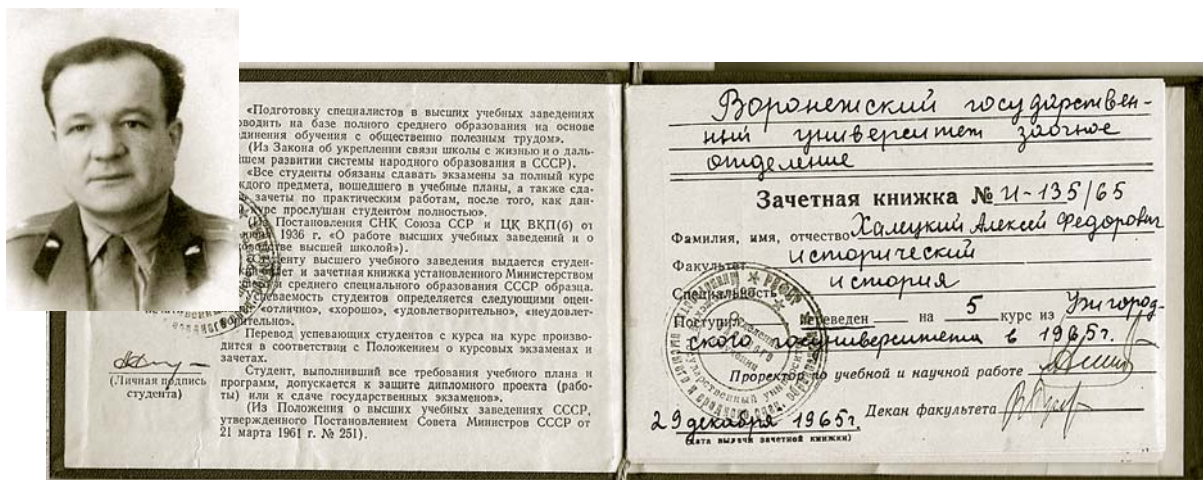 «Подготовку специалистов в высших учебных заведениях
водить на базе полного среднего образования на основе
единения обучения с общественно полезным трудом».
(Из Закона об укреплении связи школы с жизнью и о даль-
шем развитии системы народного образования в СССР).
«Все студенты обязаны сдавать экзамены за полный курс
ждого предмета, вошедшего в учебные планы, а также сда-
зачеты по практическим работам, после того, как дан-
курс прослушан студентом полностью».
Постановления СНК Союза ССР и ЦК ВКП(б) от
1936 г. «О работе высших учебных заведений и о
водстве высшей школой»).
Студенту высшего учебного заведения выдается студен-
билет и зачетная книжка установленного Министерством
и среднего специального образования СССР образца.
Успеваемость студентов определяется следующими оцен-
«отлично», «хорошо», «удовлетворительно», «неудовлет-
ворительно».
Перевод успевающих студентов с курса на курс произво-
дится в соответствии с Положением о курсовых экзаменах и
зачетах.
Студент, выполнивший все требования учебного плана и
программ, допускается к защите дипломного проекта (рабо-
ты) или к сдаче государственных экзаменов».
(Из Положения о высших учебных заведениях СССР,
утвержденного Постановлением Совета Министров СССР от
21 марта 1961 г. № 251).
(Личная подпись
студента)
Воронежский государствен-
ный университет заочное
отделение
Зачетная книжка № И-135/65
Фамилия, имя, отчество Халецкий Алексей Федорович
Факультет исторический
Специальность история
Поступил переведен на 5 курс из Ужгород-
ского госуниверситета в 1965г.
Проректор по учебной и научной работе
Декан факультета
29 декабря 1965г.
(дата выдачи зачетной книжки)